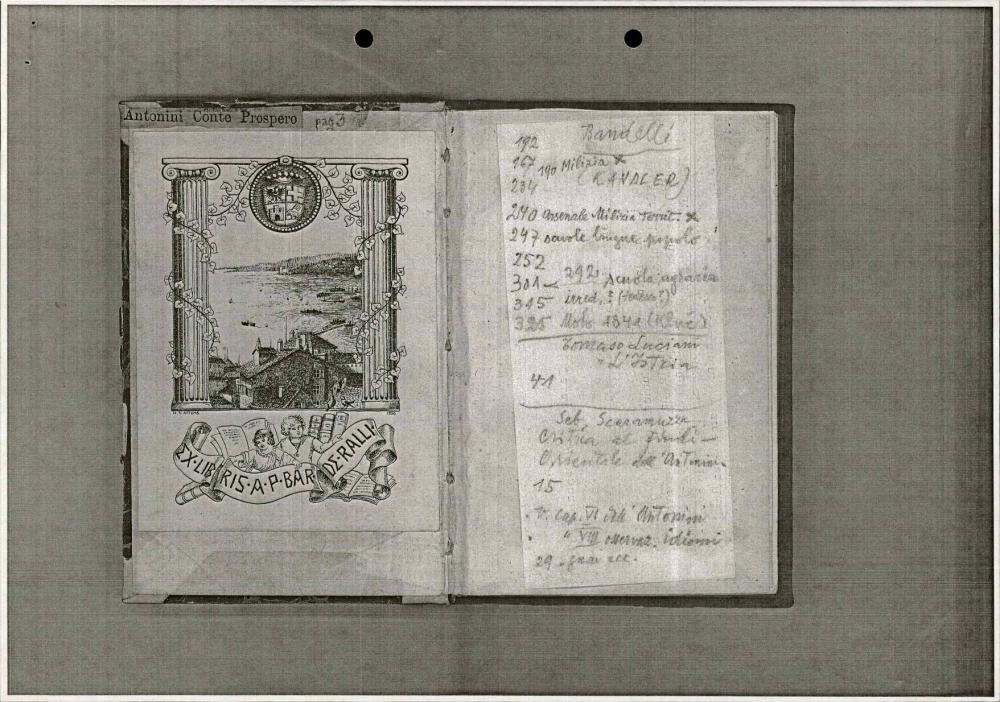 Antonini Conte Prospero pag 3
EX·LIBRIS·A·P·BAR·DE·RALLI·
192 Bandelli
167 190 Milizia x
234 (KANDLER)
240 Arsenale Milizia Territ. x
247 scuole lingue popolo
252
301 – 292 scuola agraria
315 irred.
325 Moto 1841
Tomaso Luciani
"L'Istria
41
Seb. Scaramuzza
Critica al
Orientale dell'Antonini.
15
V. cap. VI dell'Antonini
" VIII osservaz. idiomi
29